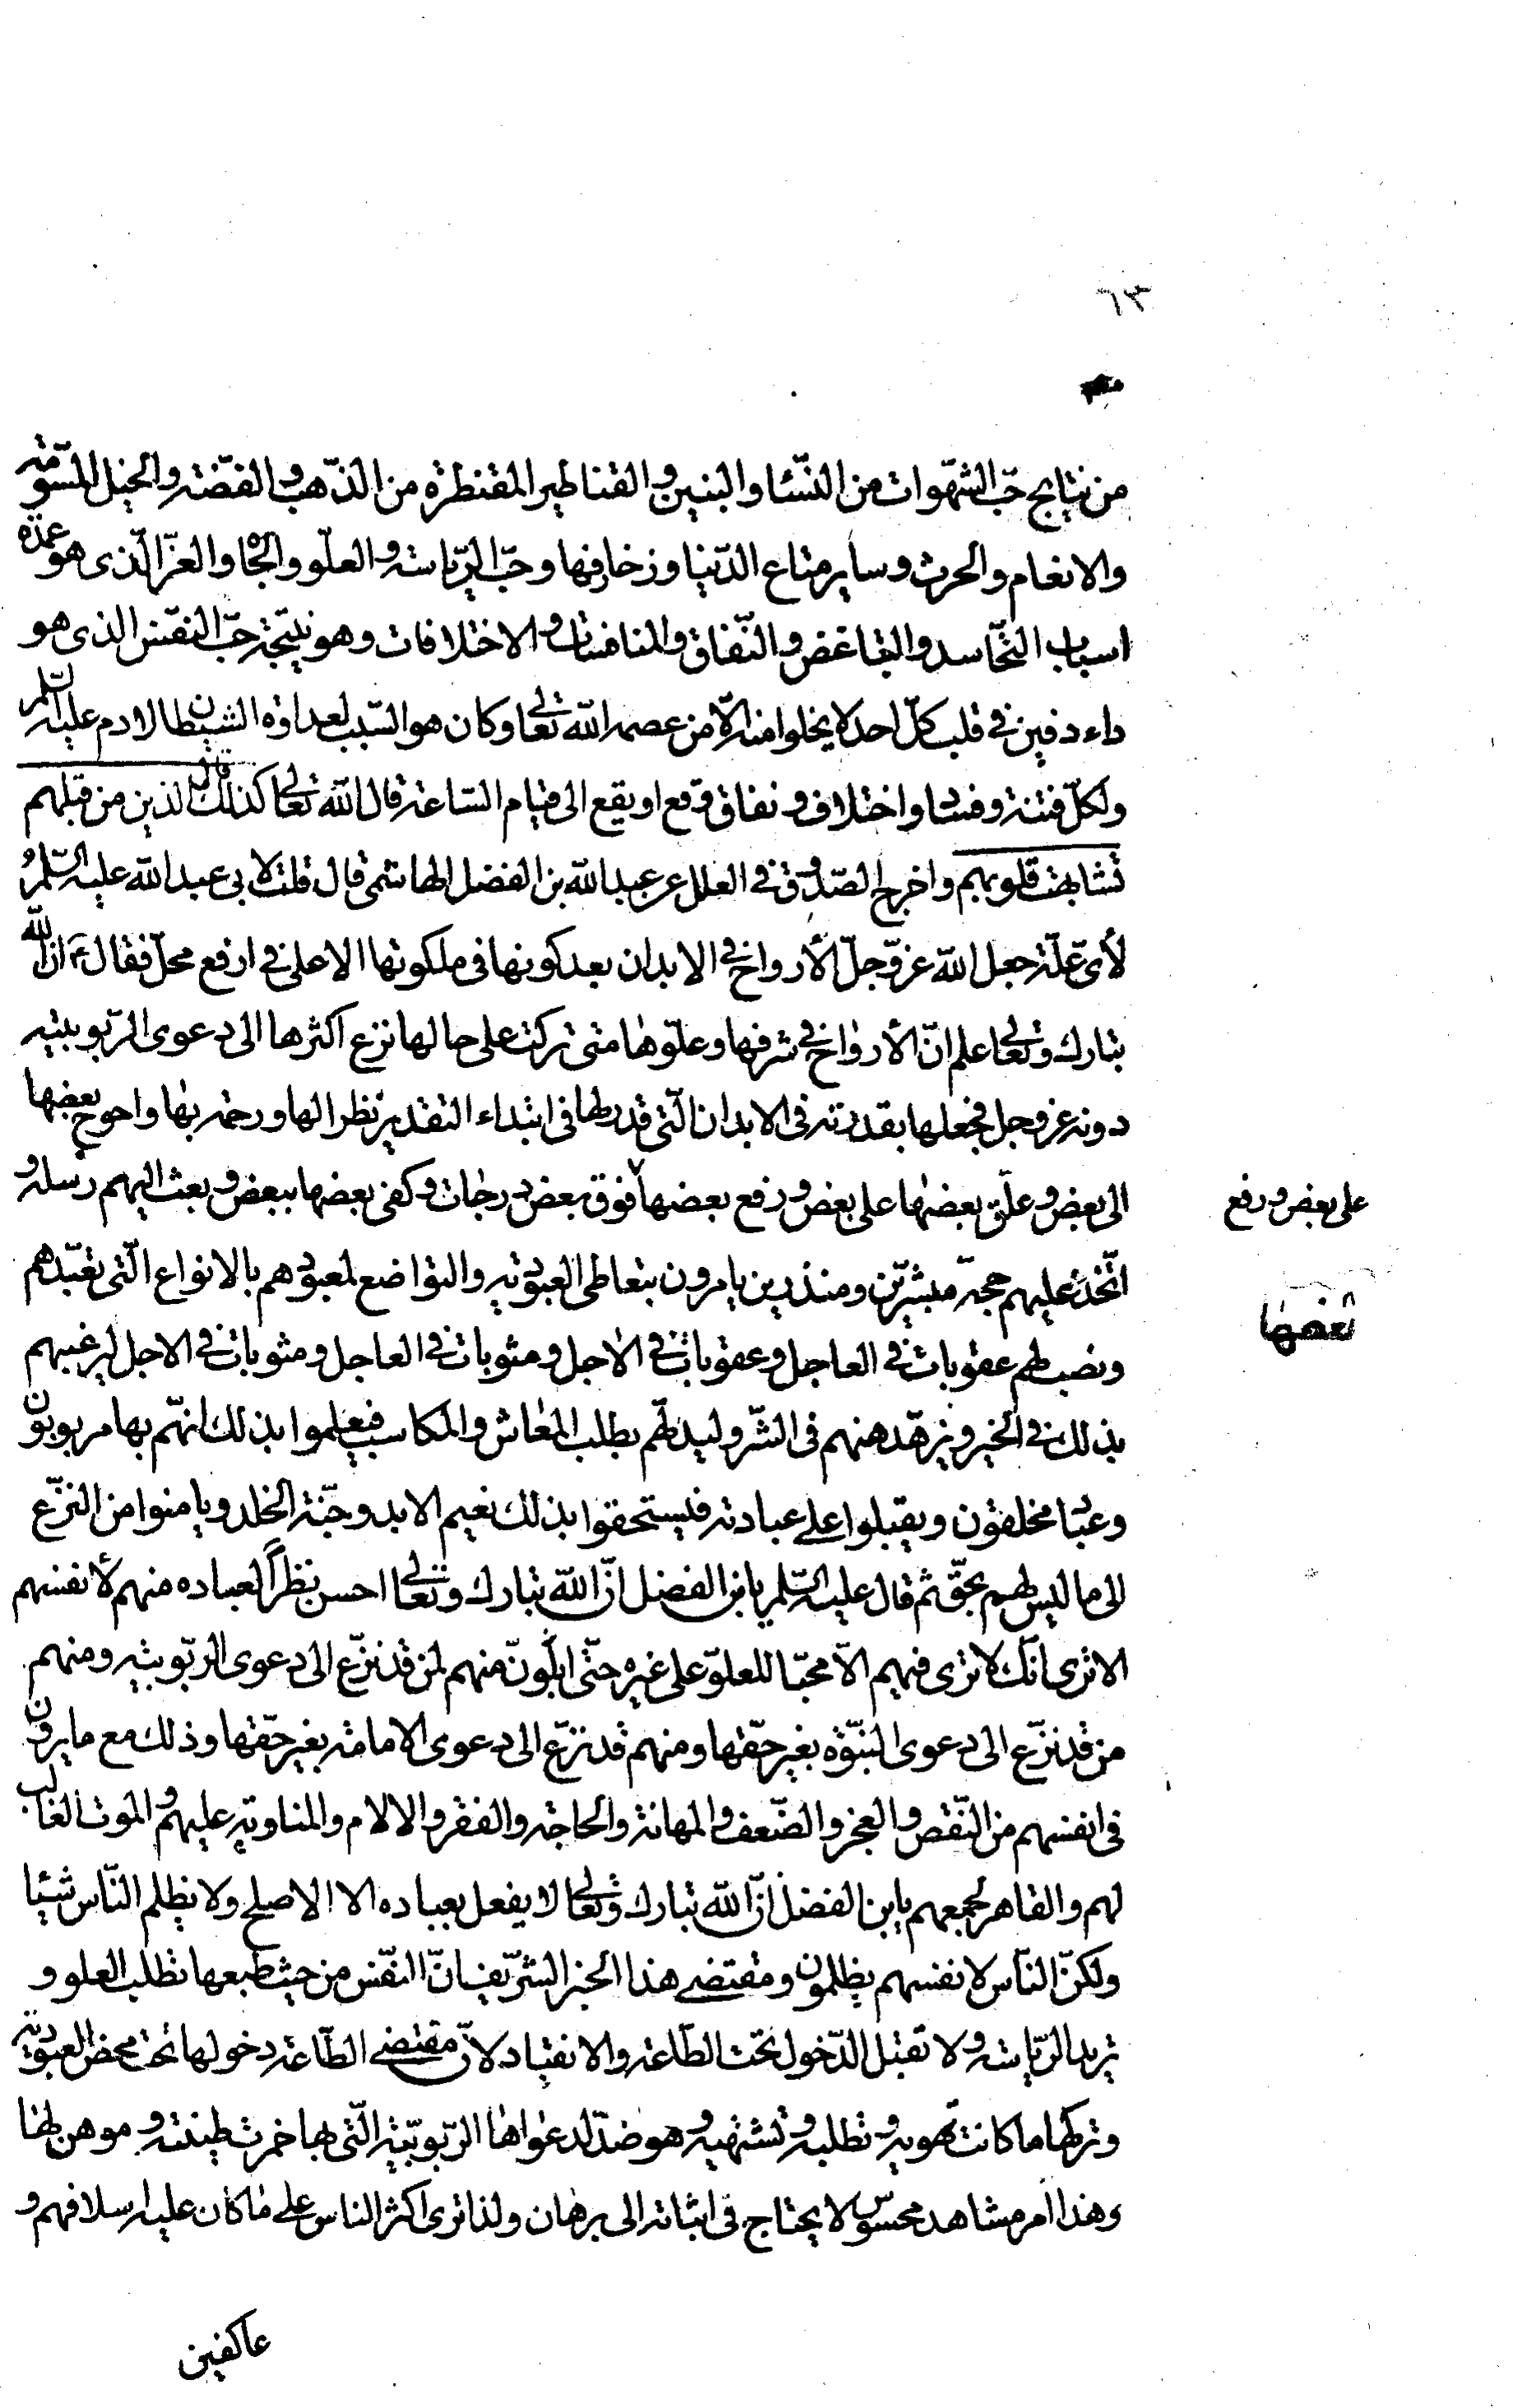 ٦٣
من نتايج حبّ الشهوات من النّساء والبنين والقناطير المقنطرة من الذّهب والفضّة والخيل المسّومة
والانعام والحرث وساير متاع الدّنيا وزخارفها وحبّ الرّياسة والعلّو والجاه والعزّ الّذى هو عمدة
اسباب التّحاسد والتباغض والنّفاق والمنافسات والاختلافات وهو نتيجة حبّ النفّس الذى هو
داء دفين في قلب كلّ احد لا يخلوا منه الّا من عصمه الله تعالى وكان هو السّبب لعداوة الشيطان لادم عليه السّلم
ولكلّ فتنة وفساد واختلاف ونفاق وقع او يقع الى قيام السّاعة قال الله تعالى كذلك قال الذين من قبلهم
تشابهت قلوبهم واخرج الصّدوق في العلل عن عبد الله بن الفضل الهاشمى قال قلت لابى عبد الله عليه السّلم
لأىّ علّة جعل الله عزّ وجلّ الأرواح في الابدان بعد كونها فى ملكوتها الاعلى في ارفع محلّ فقال ع انّ الله
تبارك وتعالى علم انّ الأرواح في شرفها وعلّوها متى تركت على حالها نزع اكثرها الى دعوى الرّبوبيّة
دونه عزّ وجل فجعلها بقدرته فى الابدان الّتى قدر لها فى ابتداء التقدير نظرا لها ورحمة بها واحوج بعضها
الى بعض وعلّق بعضها على بعض ورفع بعضها فوق بعض درجات وكفى بعضها ببعض وبعث اليهم رسله و
على بعض ورفع
بعضها
اتّخذ عليهم حجة مبشرّين ومنذرين يامرون بتعاطى العبوديّة والتواضع لمعبودهم بالانواع الّتى تعبّدهم
ونصب لهم عقوبات في العاجل وعقوبات في الاجل ومثوبات في العاجل ومثوبات في الاجل ليرغبهم
بذلك في الخير ويزهّدهنهم فى الشّر وليدلّهم بطلب المعاش والمكاسب فيعلموا بذلك انهّم بها مربوبون
وعبّاد مخلقون ويقبلوا على عبادته فيستحقوا بذلك نعيم الابد وجنّة الخلد ويامنوا من النزّع
الى ما ليس لهم بحقّ ثم قال عليه السّلم يا بن الفضل انّ الله تبارك وتعالى احسن نظراً لعباده منهم لأنفسهم
الا ترى انّك لا ترى فيهم الّا محبّا للعلوّ على غيره حتّى انّ منهم لمن قد نزع الى دعوى الربّوبيّة ومنهم
من قد نزّع الى دعوى النبّوة بغير حقّها ومنهم قد نزّع الى دعوى الامامة بغير حقّها وذلك مع ما يرون
فى انفسهم من النّقص والعجز والضّعف والمهانة والحاجة والفقر والالام والمناوبة عليهم والموت الغالب
لهم والقاهر لجمعهم يابن الفضل انّ الله تبارك وتعالى لا يفعل بعباده الا الاصلح ولا يظلم النّاس شيئا
ولكنّ النّاس لانفسهم يظلمون ومقتضى هذا الخبر الشّريف انّ النفّس من حيث طبعها تطلب العلو و
تريد الرّياسة ولا تقبل الدّخول تحت الطّاعة والانقياد لانّ مقتضى الطّاعة دخولها تحت محض العبوديّة
وتركها ما كانت تهويه وتطلبه وتشتهيه وهو ضدّ لدعواها الربّوبيّة الّتى بها خمرت طينته وموهن لها
وهذا امر مشاهد محسوس لا يحتاج فى اثباته الى برهان ولذا ترى اكثر الناس على ما كان عليه اسلافهم و
عاكفين